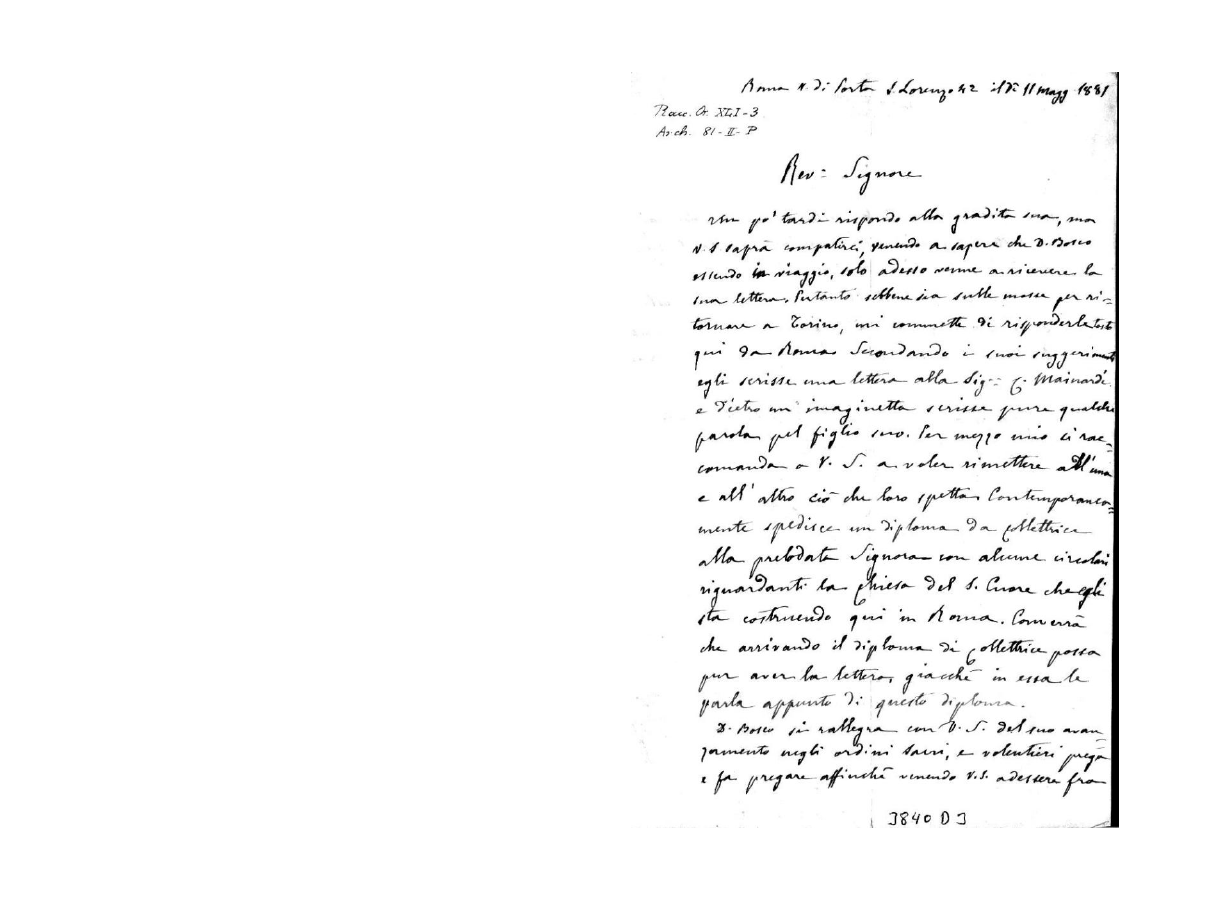 Roma v. di Porta S. Lorenzo 42 il dì 11 magg 1881
Racc. Or. XLI-3
Arch. 81-II-P
Rev: Signore
Un po' tardi rispondo alla gradita sua, ma
V. S saprà compatirci, venendo a sapere che D. Bosco
essendo in viaggio, solo adesso venne a ricevere la
sua lettera. Pertanto sebbene sia sulle mosse per ri=
tornare a Torino, mi commette di risponderle tosto
qui da Roma. Secondando i suoi suggerimenti
egli scrisse una lettera alla Sig.= C. Mainardi
e dietro un' imaginetta scrisse pure qualche
parola pel figlio suo. Per mezzo mio si rac=
comanda a V. S. a voler rimettere all'una
e all' altro ciò che loro spetta. Contemporanea=
mente spedisce un diploma da Collettrice
alla prelodata Signora con alcune circolari
riguardanti la Chiesa del S. Cuore che egli
sta costruendo qui in Roma. Converrà
che arrivando il diploma di Collettrice possa
pur aver la lettera, giacchè in essa le
parla appunto di questo diploma.
D. Bosco si rallegra con V. S. del suo avan=
zamento negli ordini sacri, e volentieri prega
e fa pregare affinchè venendo V. S. ad essere fra
3840 D 3